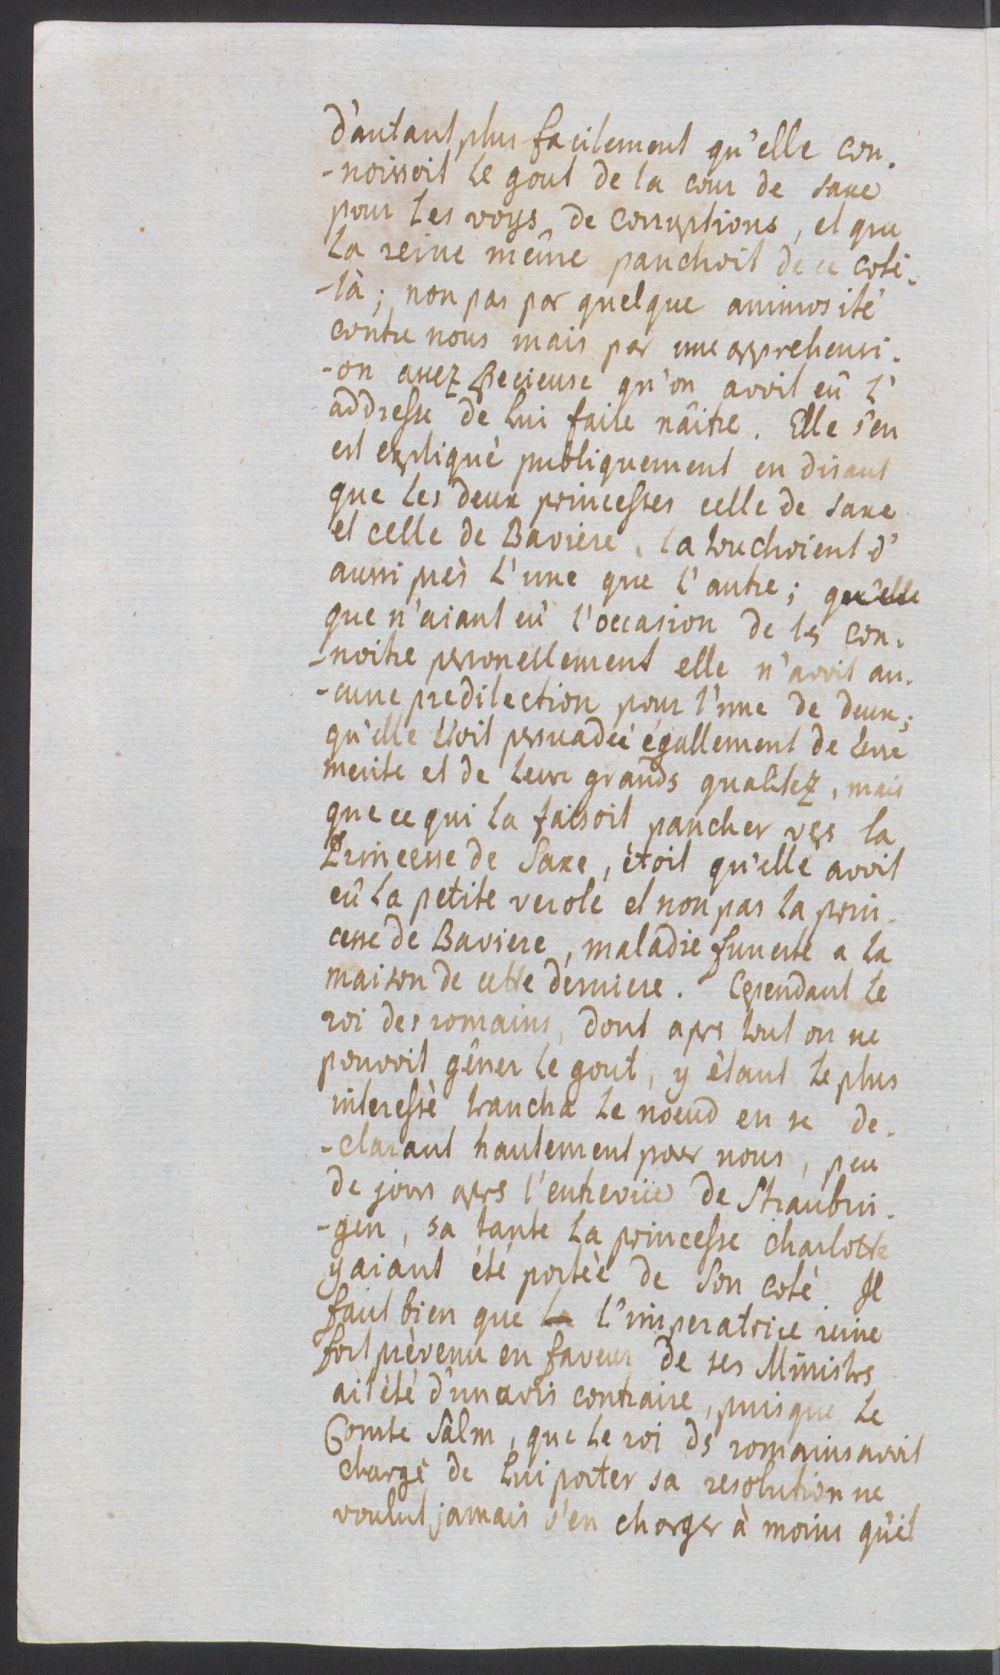 d'autant plus facilement qu'elle con.
-noissoit le gout de la cour de saxe
pour les voÿs de corruptions, et que
la reine même panchoit de ce coté.
-là; non pas par quelque animosité
contre nous mais par une apprehensi.
-on assez specieuse qu'on avoit eû l'
addresse de lui faire nâitre. Elle s'en
est expliqué publiquement en disant
que les deux princesses celle de saxe
et celle de Baviere, la touchoient d'
aussi près l'une que l'autre; qu'elle
que n'aiant eû l'occasion de les con.
-noitre personellement elle n'avoit au.
-cune predilection pour l'une de deux;
qu'elle étoit persuadée égallement de leur
merite et de leurs grands qualitez, mais
que ce qui la faisoit pancher vers la
Princesse de Saxe, étoit qu'elle avoit
eû la petite verole et non pas la prin.
cesse de Baviere, maladie funeste a la
maison de cette derniere. Cependant le
roi des romains, dont apres tout on ne
pouvoit gêner le gout, y étant le plus
interessé trancha le noeud en se de.
-clarant hautement pour nous, peu
de jours apres l'entrevüe de Straubin.
-gen, sa tante la princesse charlotte
y aiant été portée de son coté Il
faut bien que la l'imperatrice reine
fort prèvenu en faveur de ses Ministres
ait été d'un avis contraire, puisque le
Comte Sâlm, que le roi des romains avoit
chargé de lui porter sa resolution ne
voulut jamais s'en charger à moins qu'il